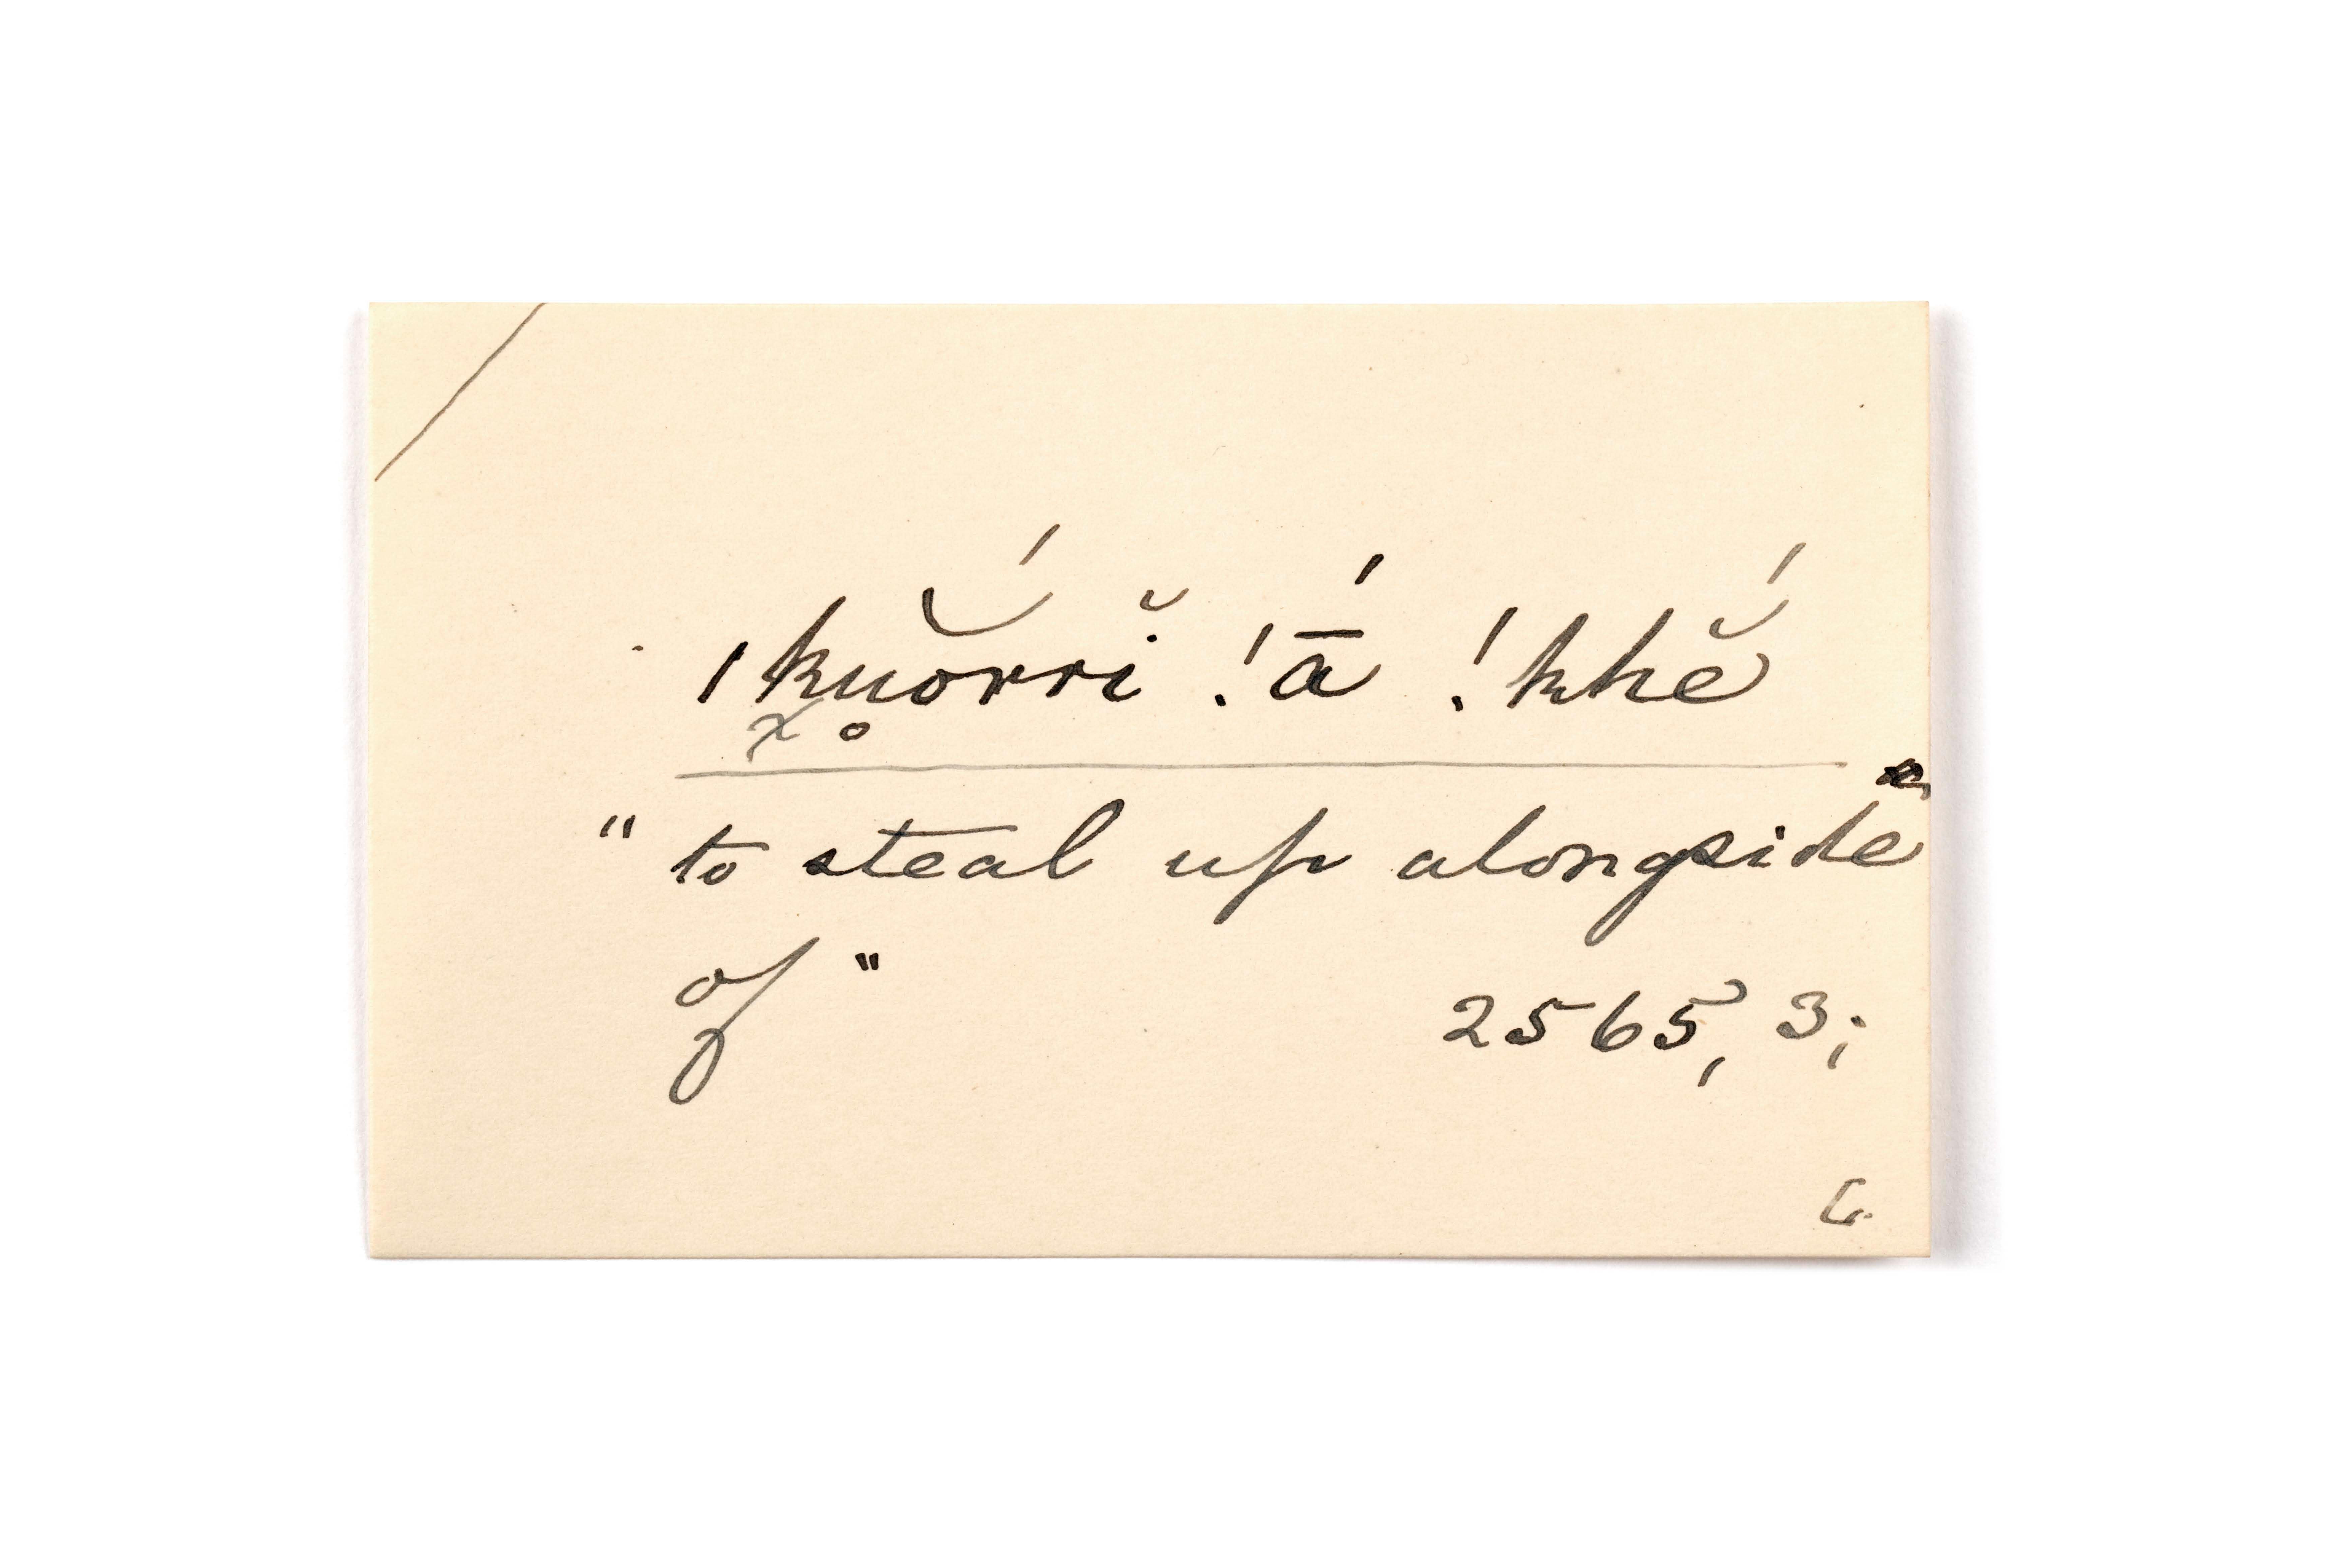 ǀku̥ŏ́rrĭ ǃā́ ǃkhĕ́
" to steal up alongside
of "
2565, 3;